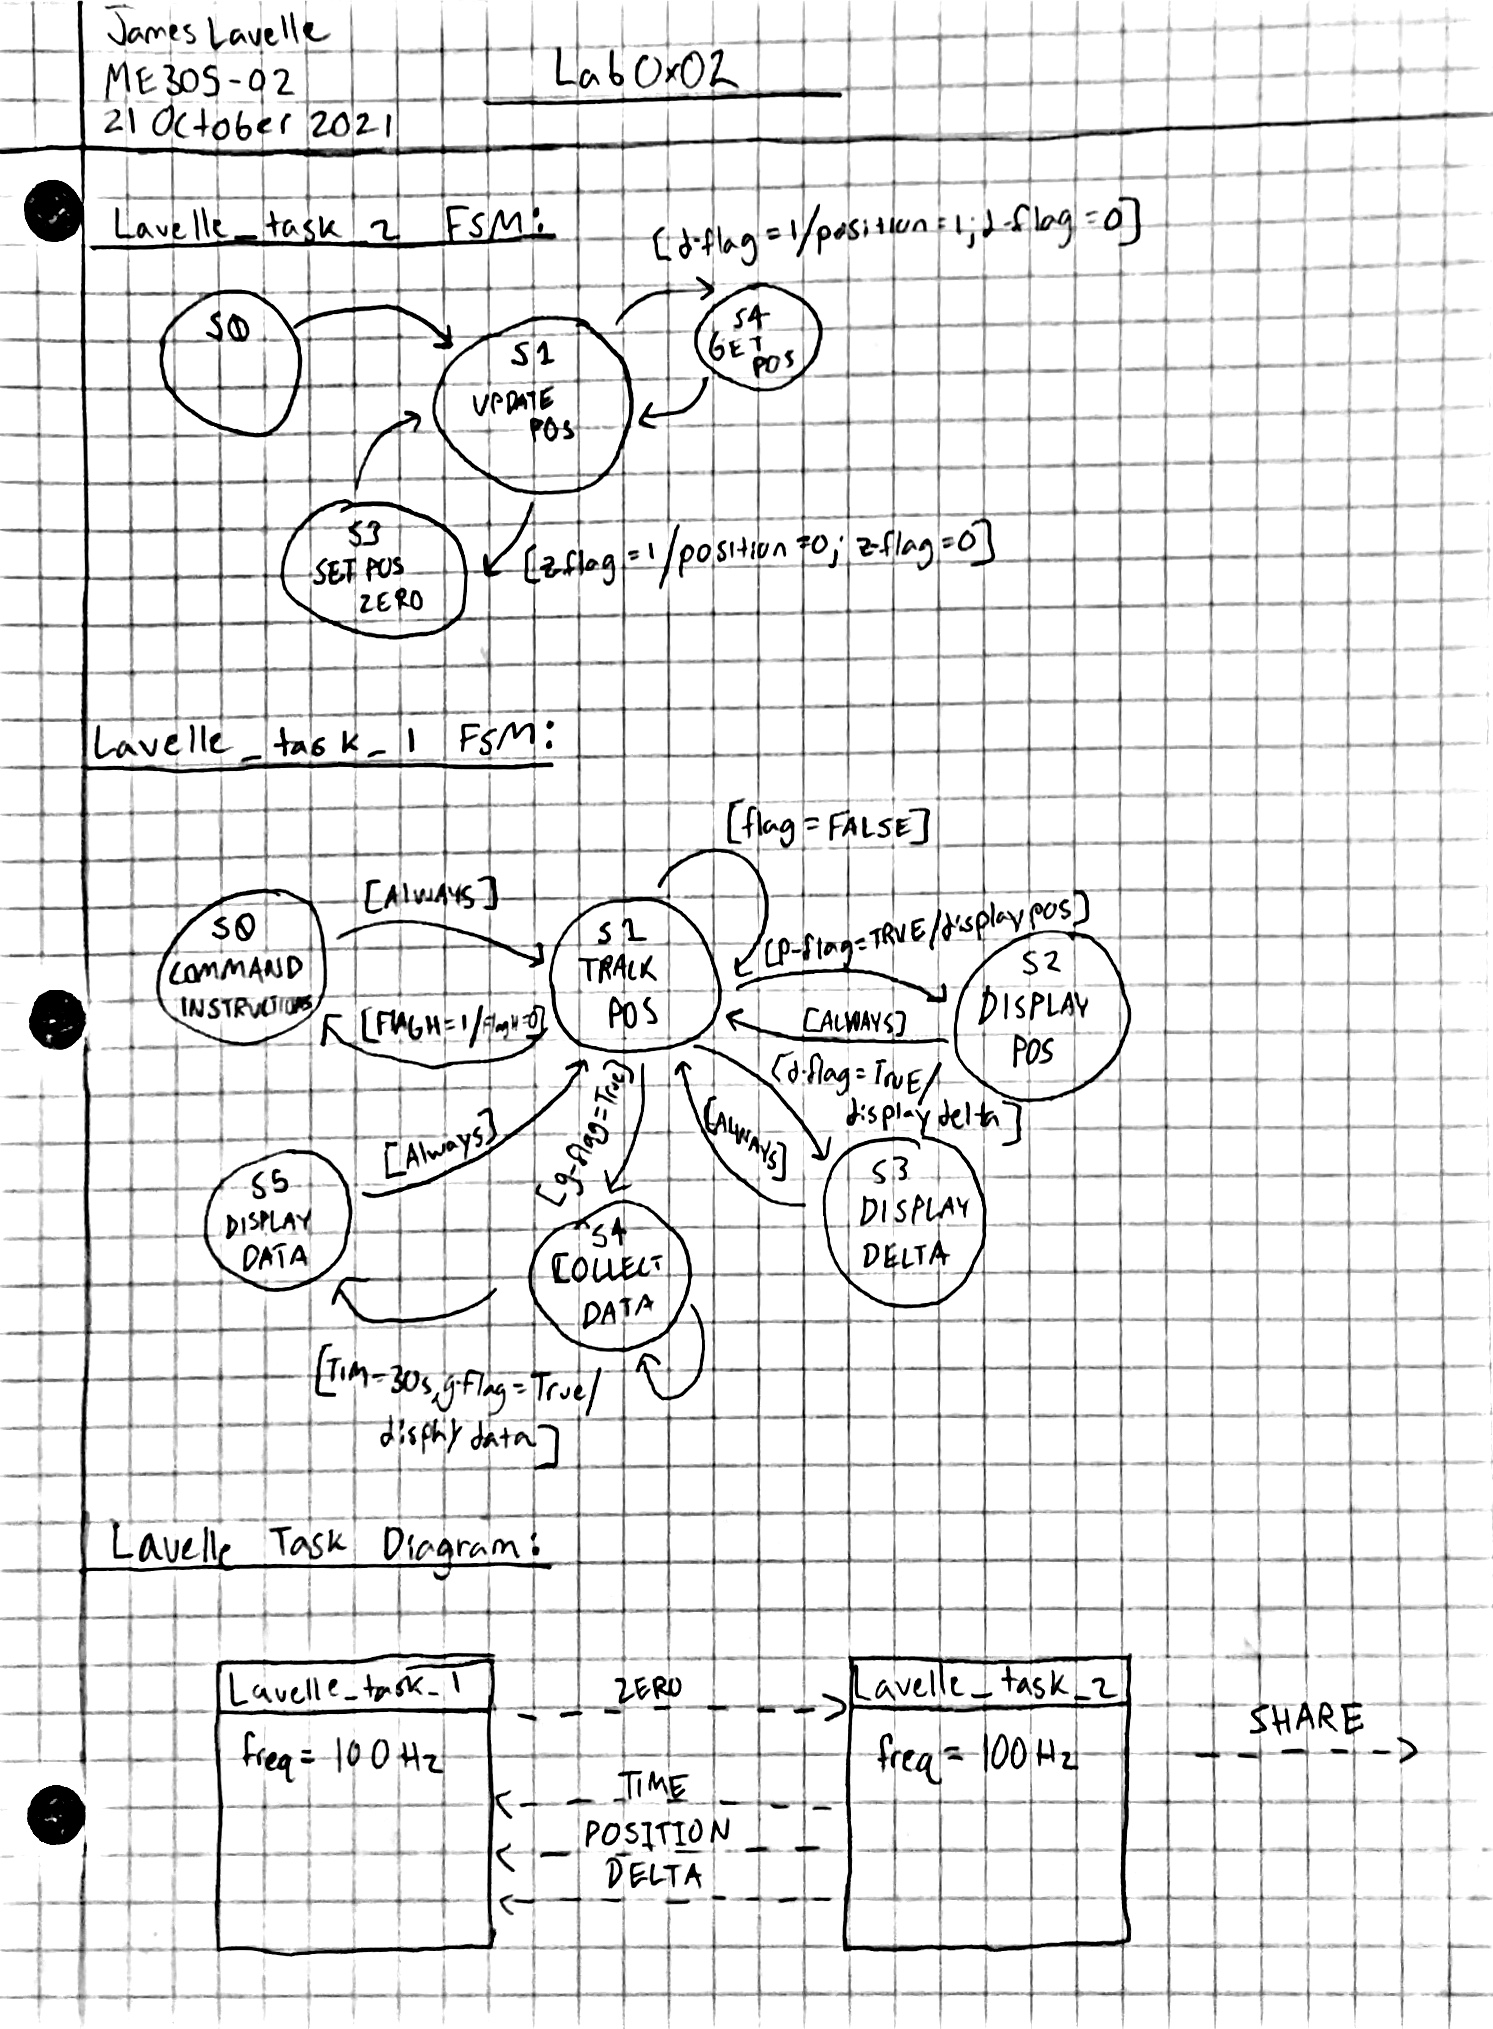 James Lavelle
ME305-02
21 October 2021
Lab 0x02
Lavelle_task_2 FSM:
[d-flag=1/position=1; d-flag=0]
S0
S1
UPDATE
POS
S4
GET
POS
S3
SET POS
ZERO
[z-flag=1/position=0; z-flag=0]
Lavelle_task_1 FSM:
[flag=FALSE]
[ALWAYS]
S0
COMMAND
INSTRUCTIONS
S1
TRACK
POS
[P-flag=TRUE/display pos]
S2
DISPLAY
POS
[FLAGH=1/FlagH=0]
[ALWAYS]
[d-flag=TRUE/
display delta]
[Always]
[g-flag=True]
[ALWAYS]
S5
DISPLAY
DATA
S4
COLLECT
DATA
S3
DISPLAY
DELTA
[TIM=30s, g-flag=True/
display data]
Lavelle Task Diagram:
Lavelle_task_1
freq = 100Hz
ZERO
TIME
POSITION
DELTA
Lavelle_task_2
freq = 100Hz
SHARE